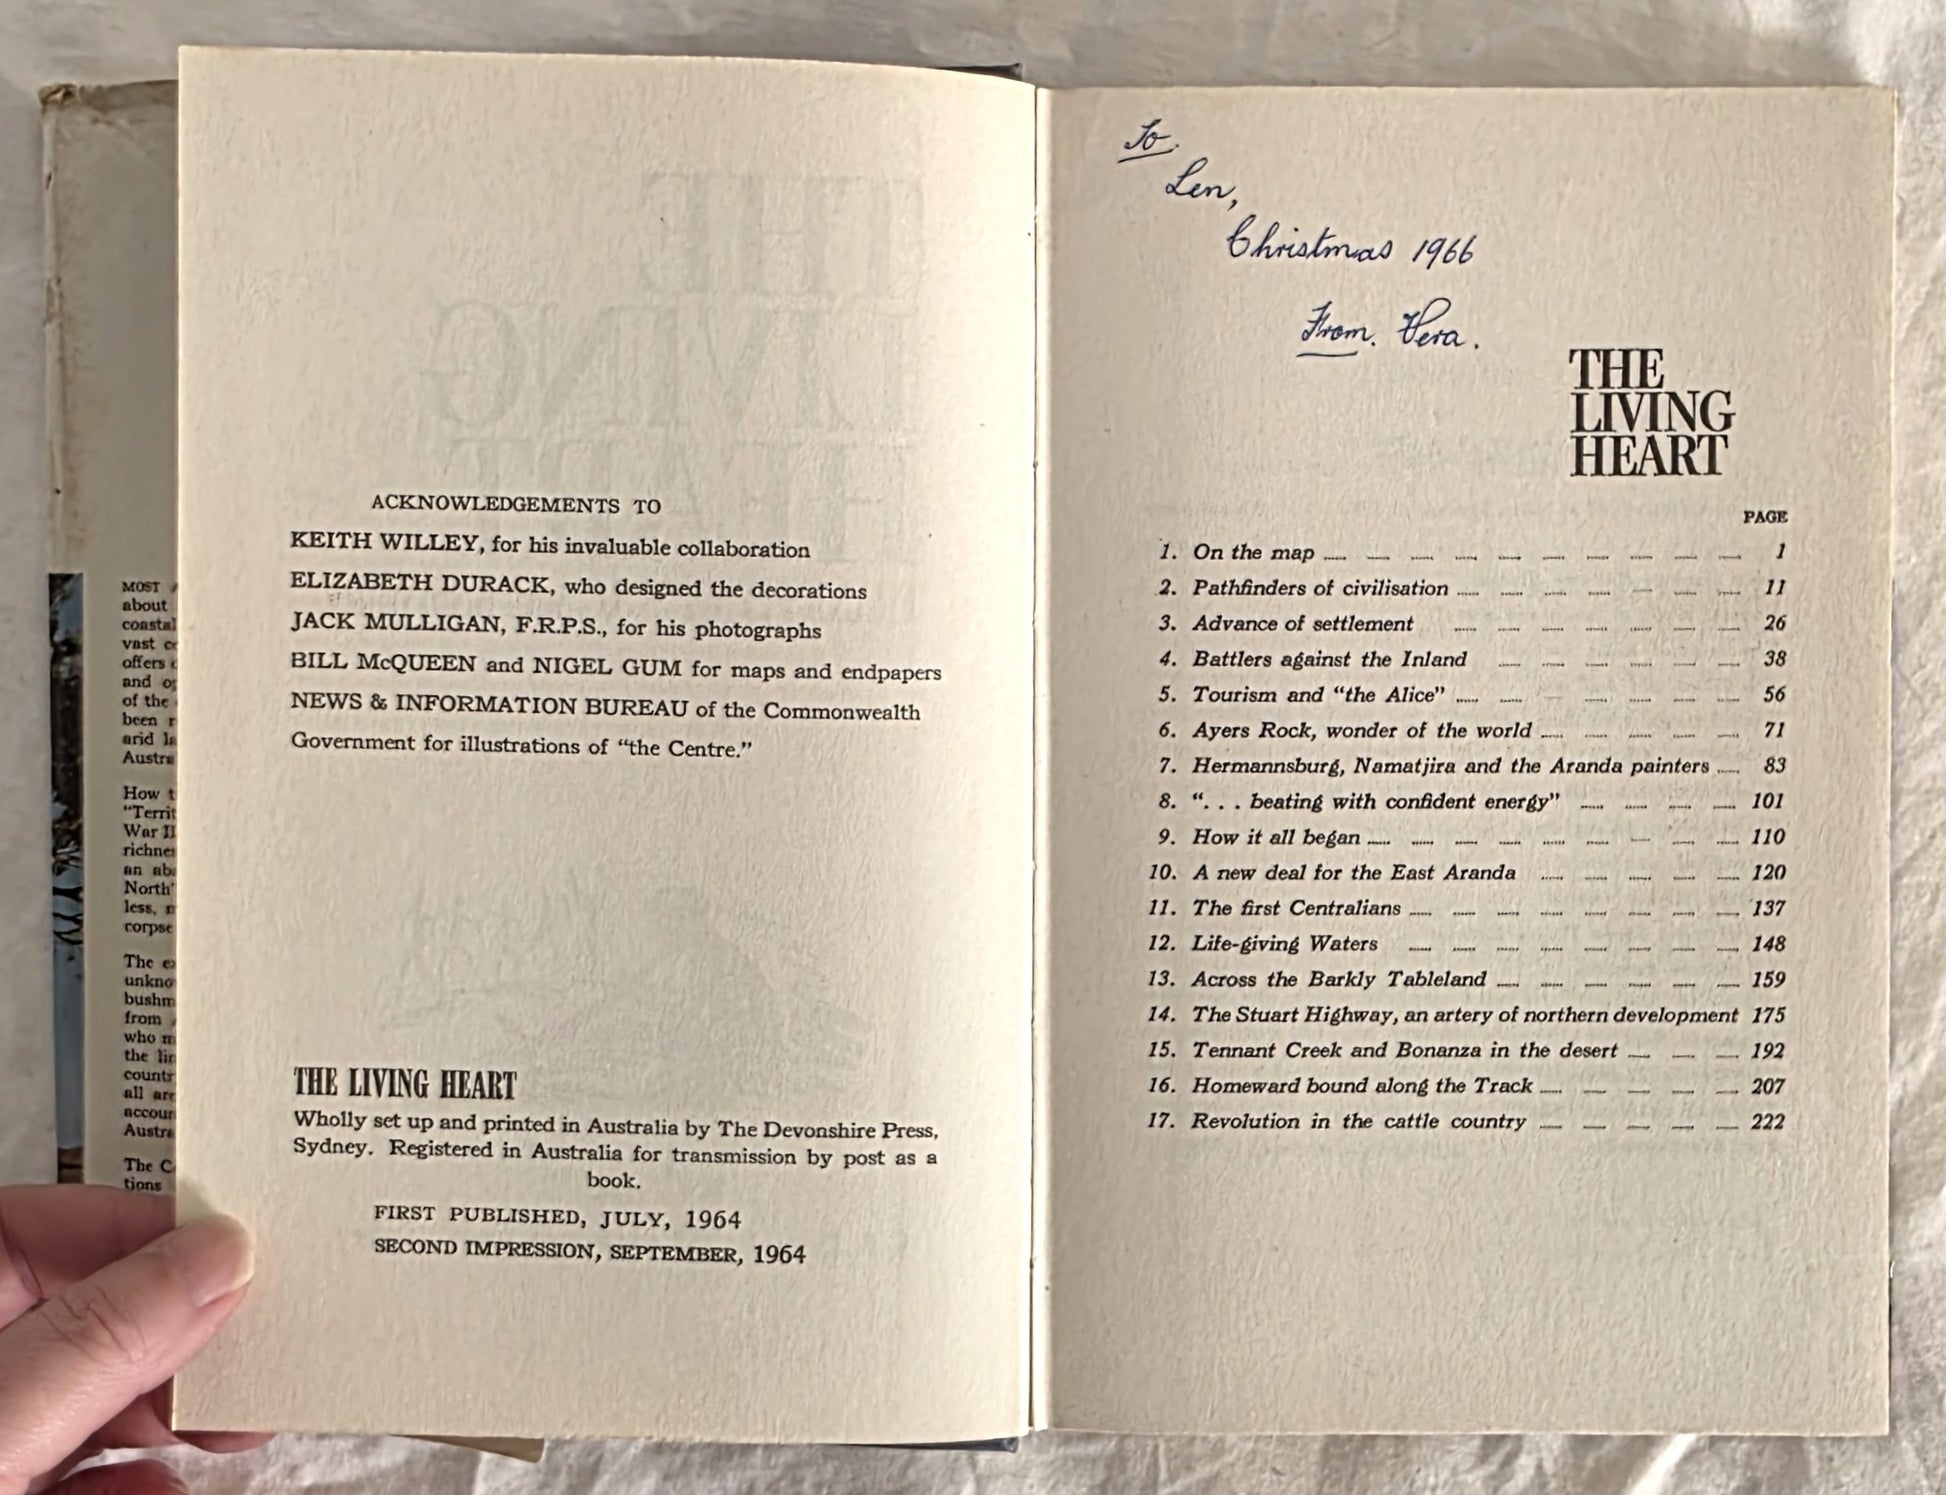 MOST
about
coastal
vast
offers
and
of the
been
arid
Austra
How
"Territ
War II
richnes
an
North"
less,
corpse
The
unkno
bushm
from
who
the
countr
all
accoun
Austra
The
tions
ACKNOWLEDGEMENTS TO
KEITH WILLEY, for his invaluable collaboration
ELIZABETH DURACK, who designed the decorations
JACK MULLIGAN, F.R.P.S., for his photographs
BILL McQUEEN and NIGEL GUM for maps and endpapers
NEWS & INFORMATION BUREAU of the Commonwealth
Government for illustrations of "the Centre."
THE LIVING HEART
Wholly set up and printed in Australia by The Devonshire Press,
Sydney. Registered in Australia for transmission by post as a
book.
FIRST PUBLISHED, JULY, 1964
SECOND IMPRESSION, SEPTEMBER, 1964
To.
Len,
Christmas 1966
From. Vera.
THE
LIVING
HEART
PAGE
1. On the map 1
2. Pathfinders of civilisation 11
3. Advance of settlement 26
4. Battlers against the Inland 38
5. Tourism and "the Alice" 56
6. Ayers Rock, wonder of the world 71
7. Hermannsburg, Namatjira and the Aranda painters 83
8. ". . . beating with confident energy" 101
9. How it all began 110
10. A new deal for the East Aranda 120
11. The first Centralians 137
12. Life-giving Waters 148
13. Across the Barkly Tableland 159
14. The Stuart Highway, an artery of northern development 175
15. Tennant Creek and Bonanza in the desert 192
16. Homeward bound along the Track 207
17. Revolution in the cattle country 222